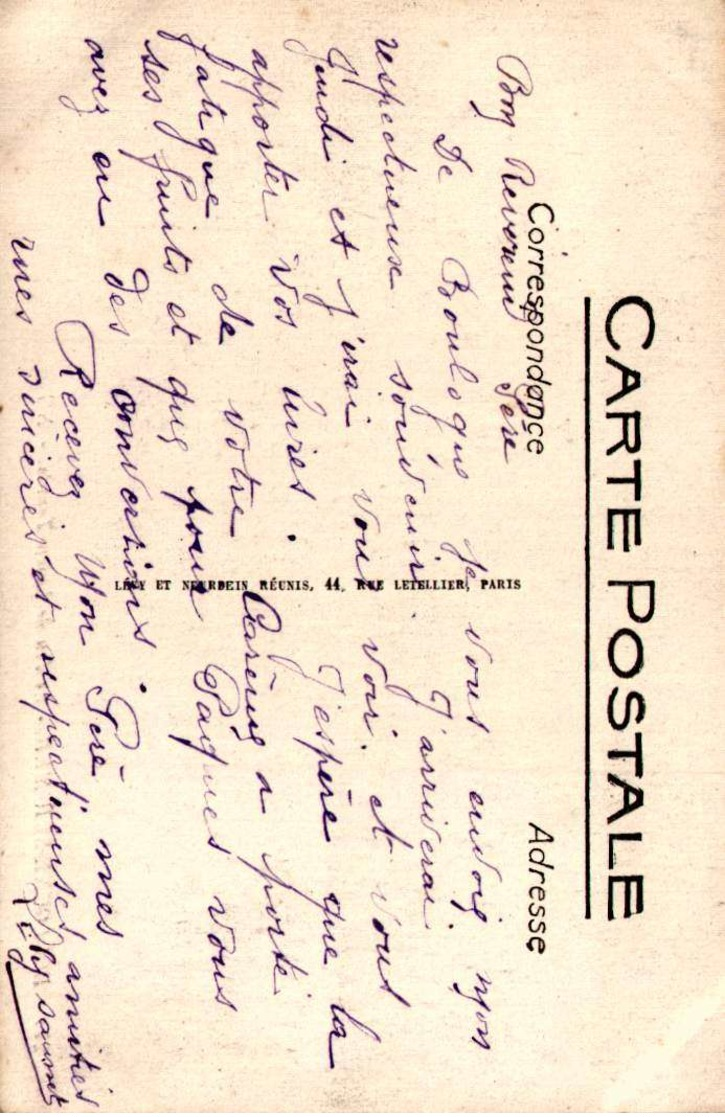 CARTE POSTALE
Correspondance
Adresse
Bon Reverend Père
De Boulogne je vous envoie mon
respectueux souvenir. J'arriverai
Jeudi et j'irai vous voir. et vous
apporter vos livres. J'espère que la
fatigue de votre Carême a porté
ses fruits et que pour Paques vous
avez eu des conversions.
Recevez Mon Père mes
mes sincères et respectueuses amitiés
LÉVY ET NEURDEIN RÉUNIS, 44, RUE LETELLIER, PARIS